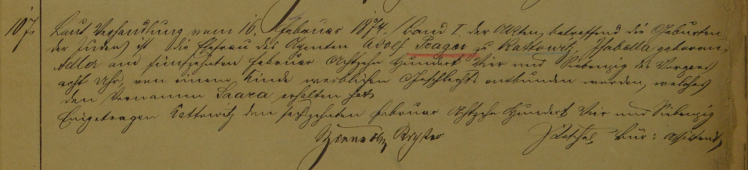 107. Laut Verhandlung vom 16. Februar 1874. /Band I. der Akten, betreffend die Geburten
der Juden/ ist die Ehefrau des Agenten Adolf Prager zu Kattowitz, Isabella geborene
Adler am fünfzehnten Februar Achtzehn Hundert Vier und Siebenzig des Morgens
acht Uhr, von einem Kinde weiblichen Geschlechts entbunden worden, welches
den Vornamen Saara erhalten hat.
Eingetragen Kattowitz den sechszehnten Februar Achtzehn Hundert Vier und Siebenzig
Richter Bür: Assistent